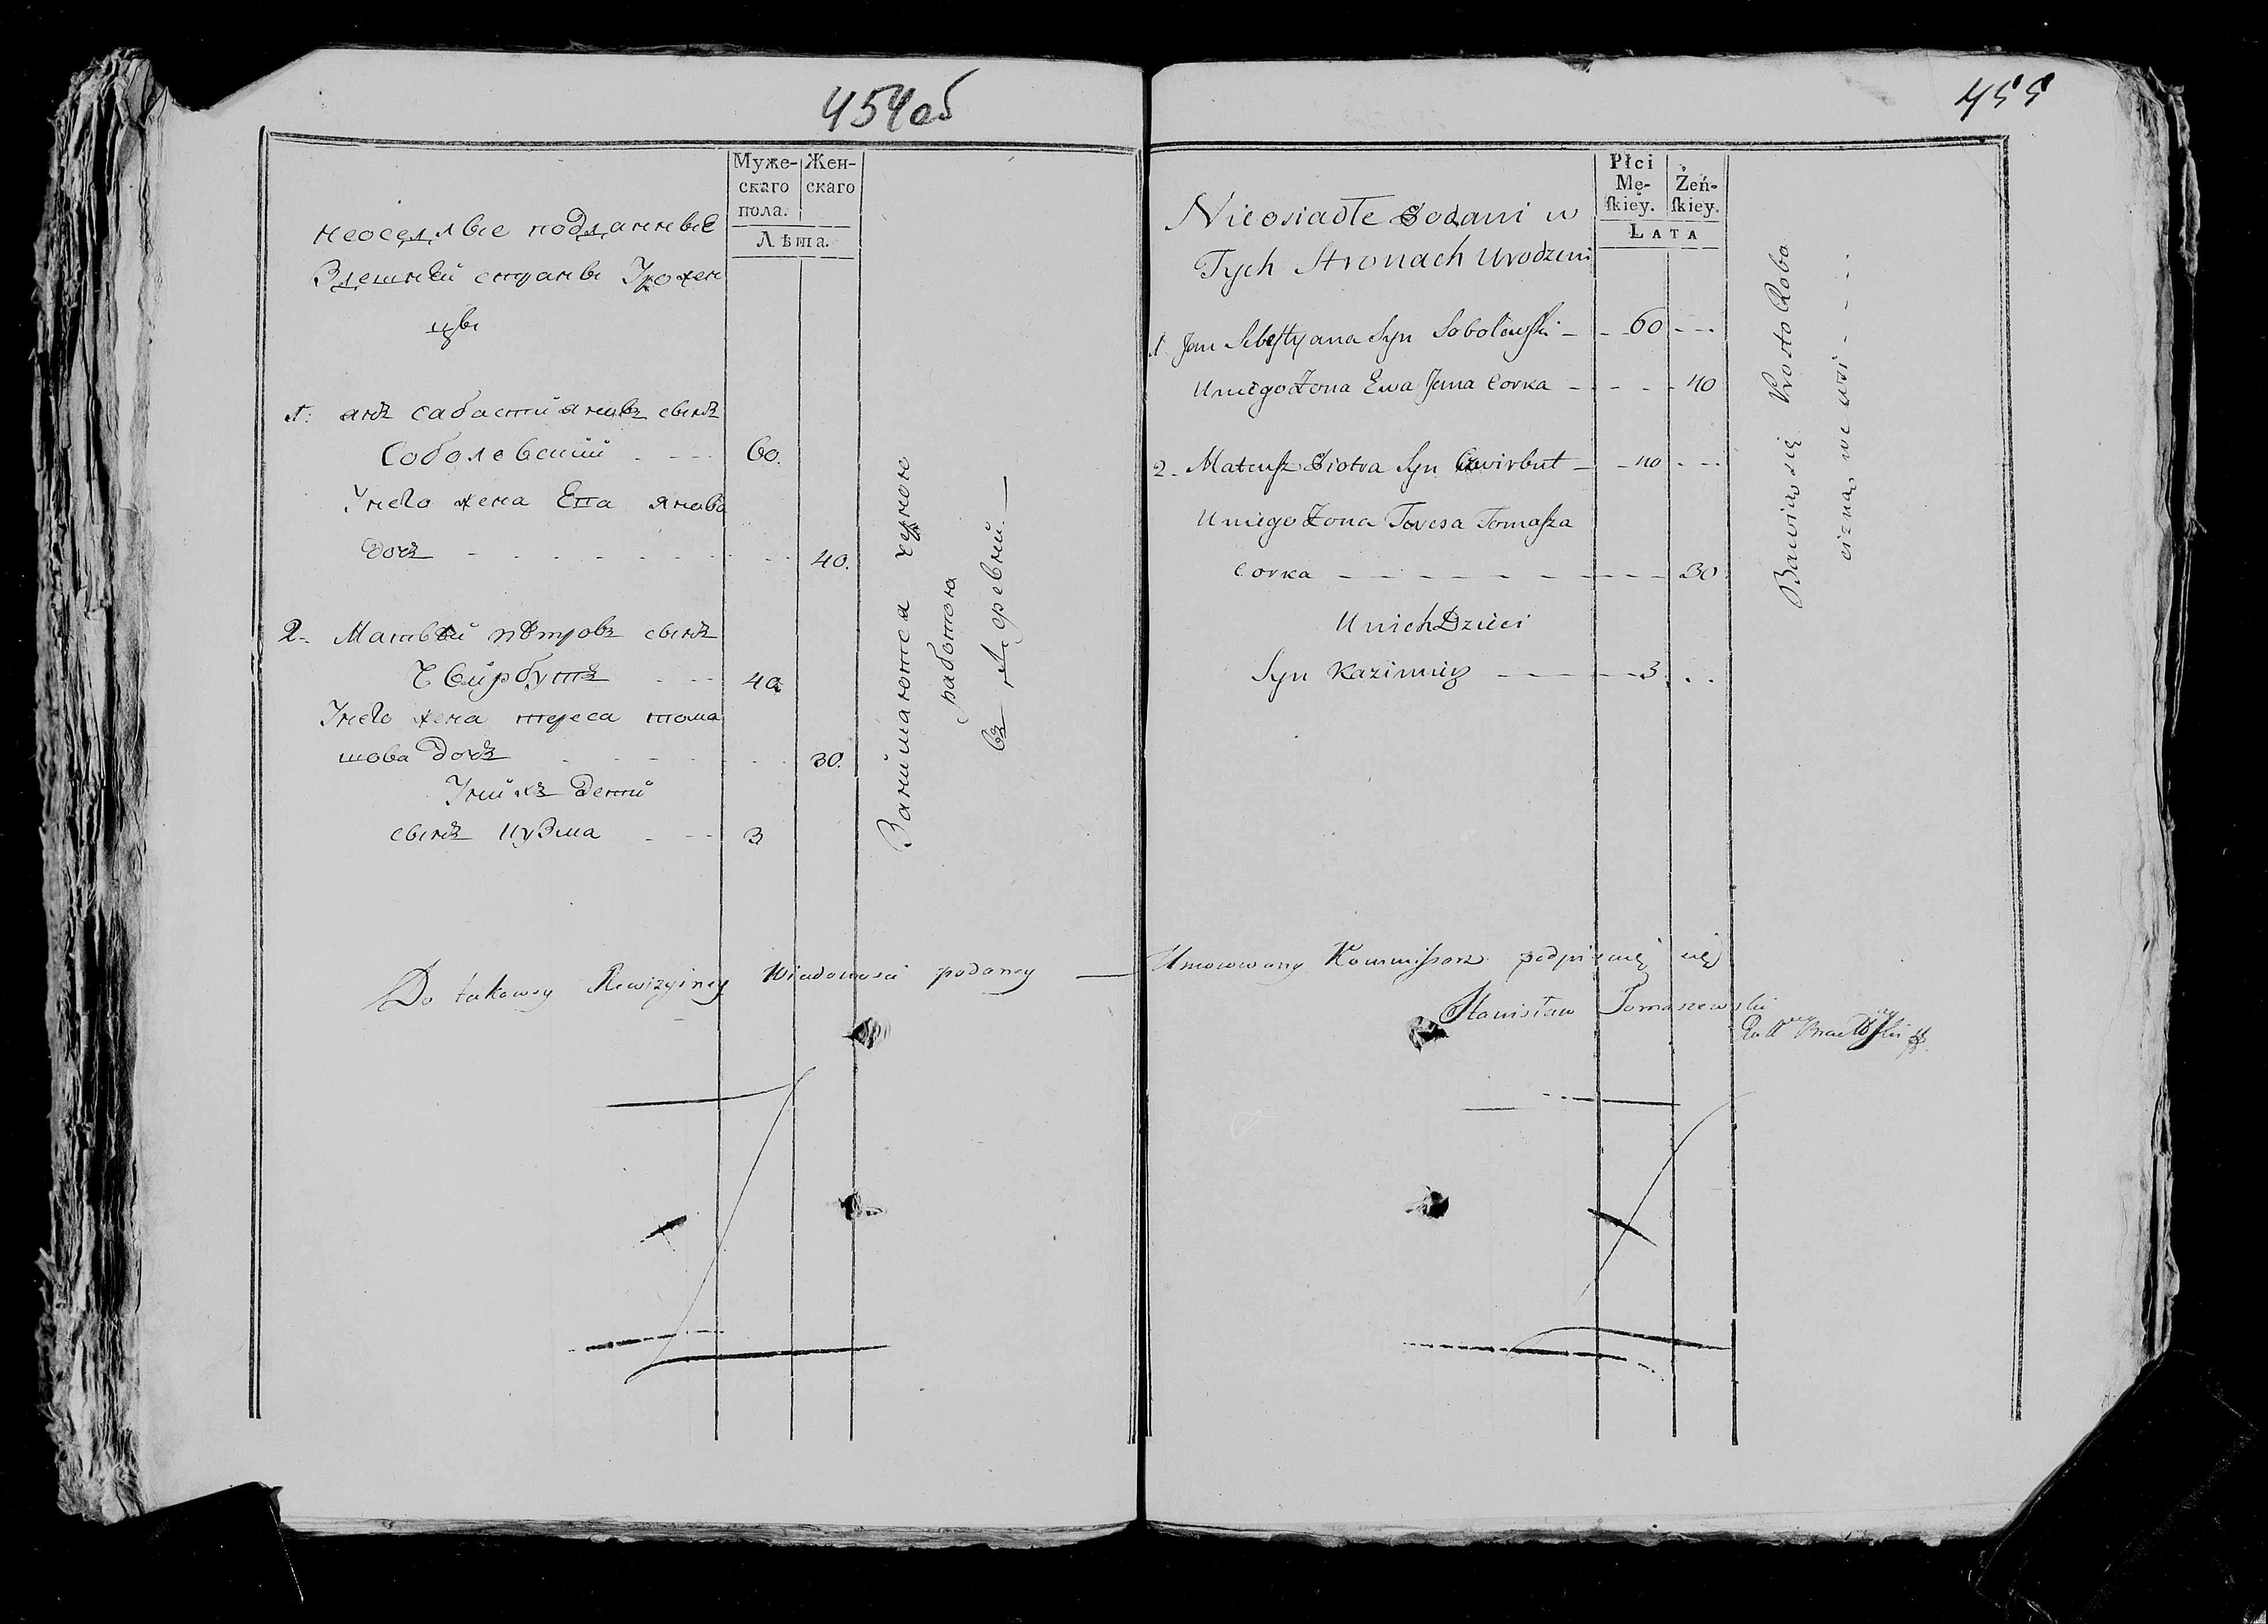 454об
Муже-
скаго
пола.
Жен-
скаго
Лѣта.
неоселлые подданные
Здешней страны Урожен
цы
1: янъ сабастйяновъ сынъ
Соболевский 60.
Унего жена Ева янова
дочъ 40.
2. Матвей петровъ сынъ
Свирбутъ 40
Унего жена тереса тома
шова дочъ 30.
Унихъ дети
сынъ кузма 3
Занимаются черною
работою
въ деревни.
Do takowey Rewizyiney Wiadomosci podaney
455
Płci
Mę-
skiey.
Żeń-
skiey.
LATA
Nieosiadłe Podani w
Tych Stronach Urodzeni
1 Jan Sebestyana Syn Sobolewski 60
Uniego Zona Ewa Jana Corka 40
2 Mateusz Piotra Syn Cwirbut 40
Uniego Zona Teresa Tomasza
Corka 30
Unich Dzieci
Syn Kazimierz 3
Bawią się Prosto Robo
cizną we wsi
Umocowany Kommissarz podpisuię się
Stanisław Tomaszewski